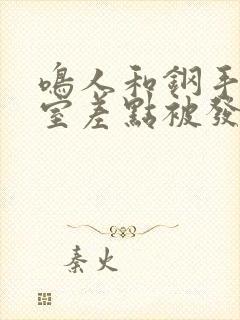 鳴人和鋼手
室差點被發
秦火